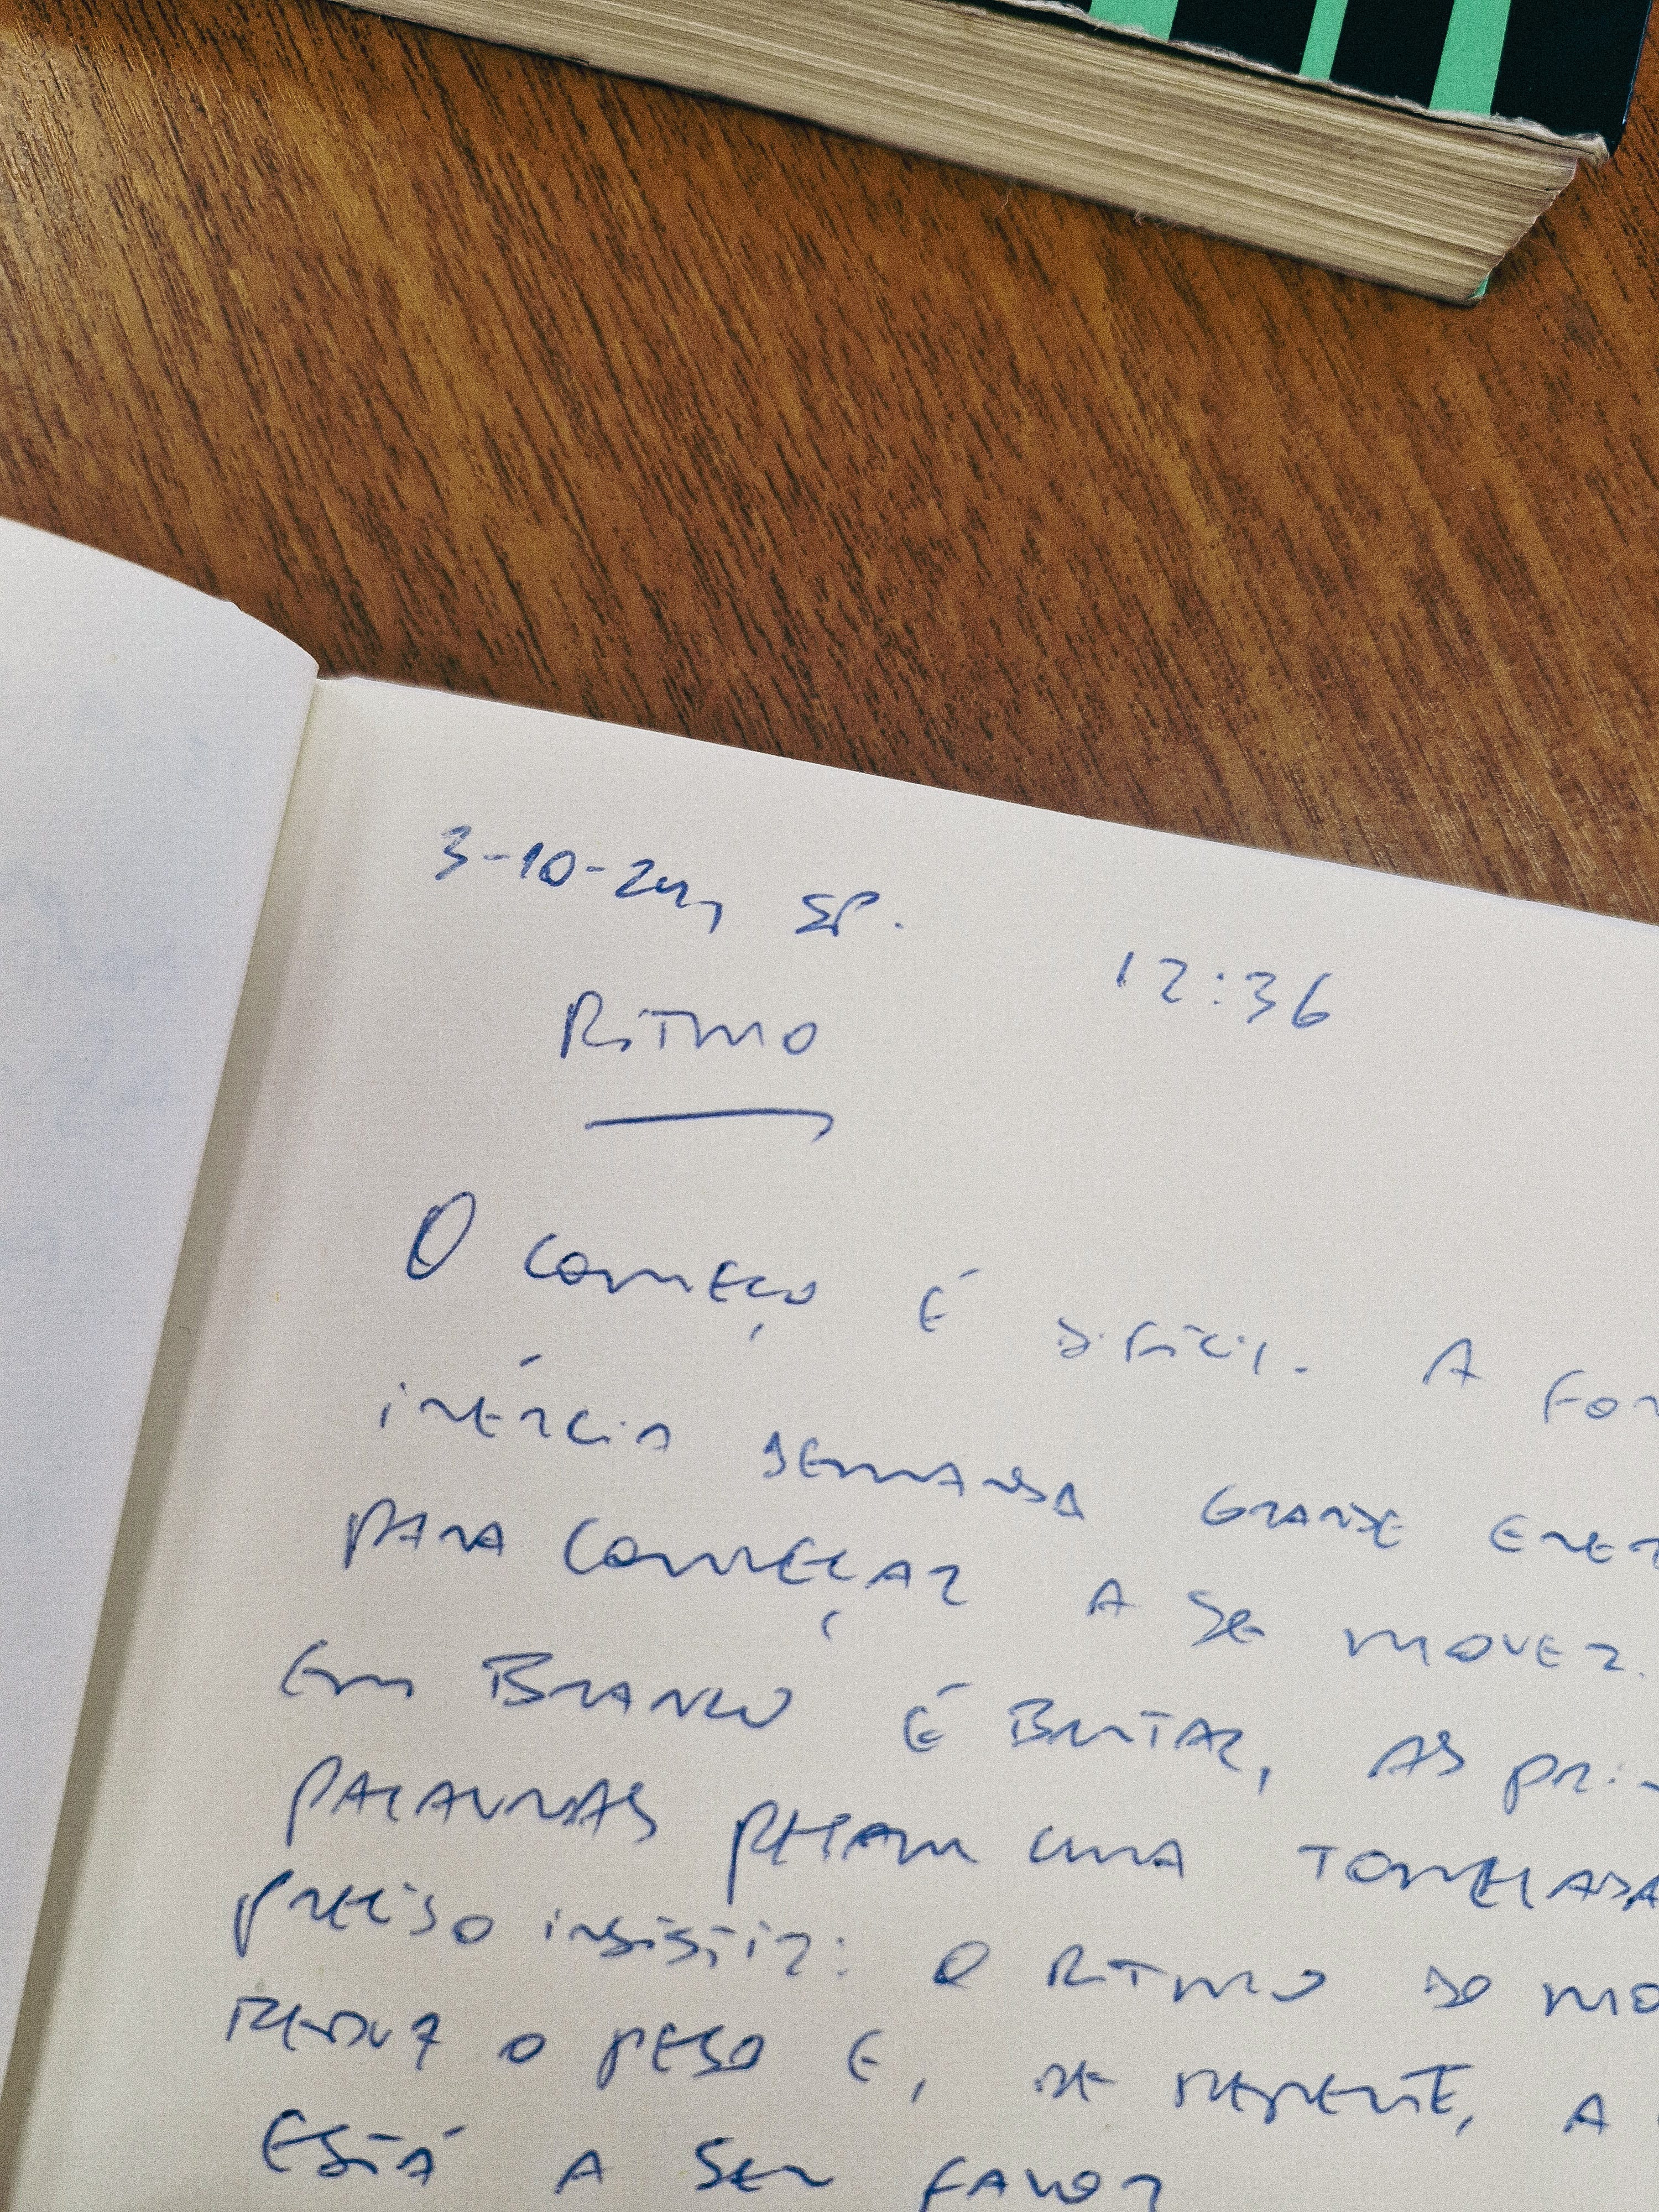 3-10-24, SP.
12:36
Ritmo
O começo é difícil. A for
inércia demanda grande ener
para começar a se mover.
em branco é brutal, as pri-
palavras pesam uma tonelada
preciso insistir: o ritmo do mo
reduz o peso e, de repente, a
está a seu favor